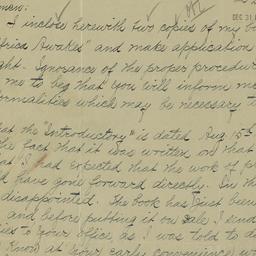 DEC 31
men:
I inclose herewith two copies of my bo
frica Awakes" and make application
ght. Ignorance of the proper procedur
me to beg that you will inform me
ormalities which may be necessary t
at the "Introductory" is dated Aug 15th
the fact that it was written on that
at I had expected that the work of p
d have gone forward directly. In th
disappointed. The book has just been
and before putting it on sale I send
ies to your office, as I was told to d
know at your early convenience w